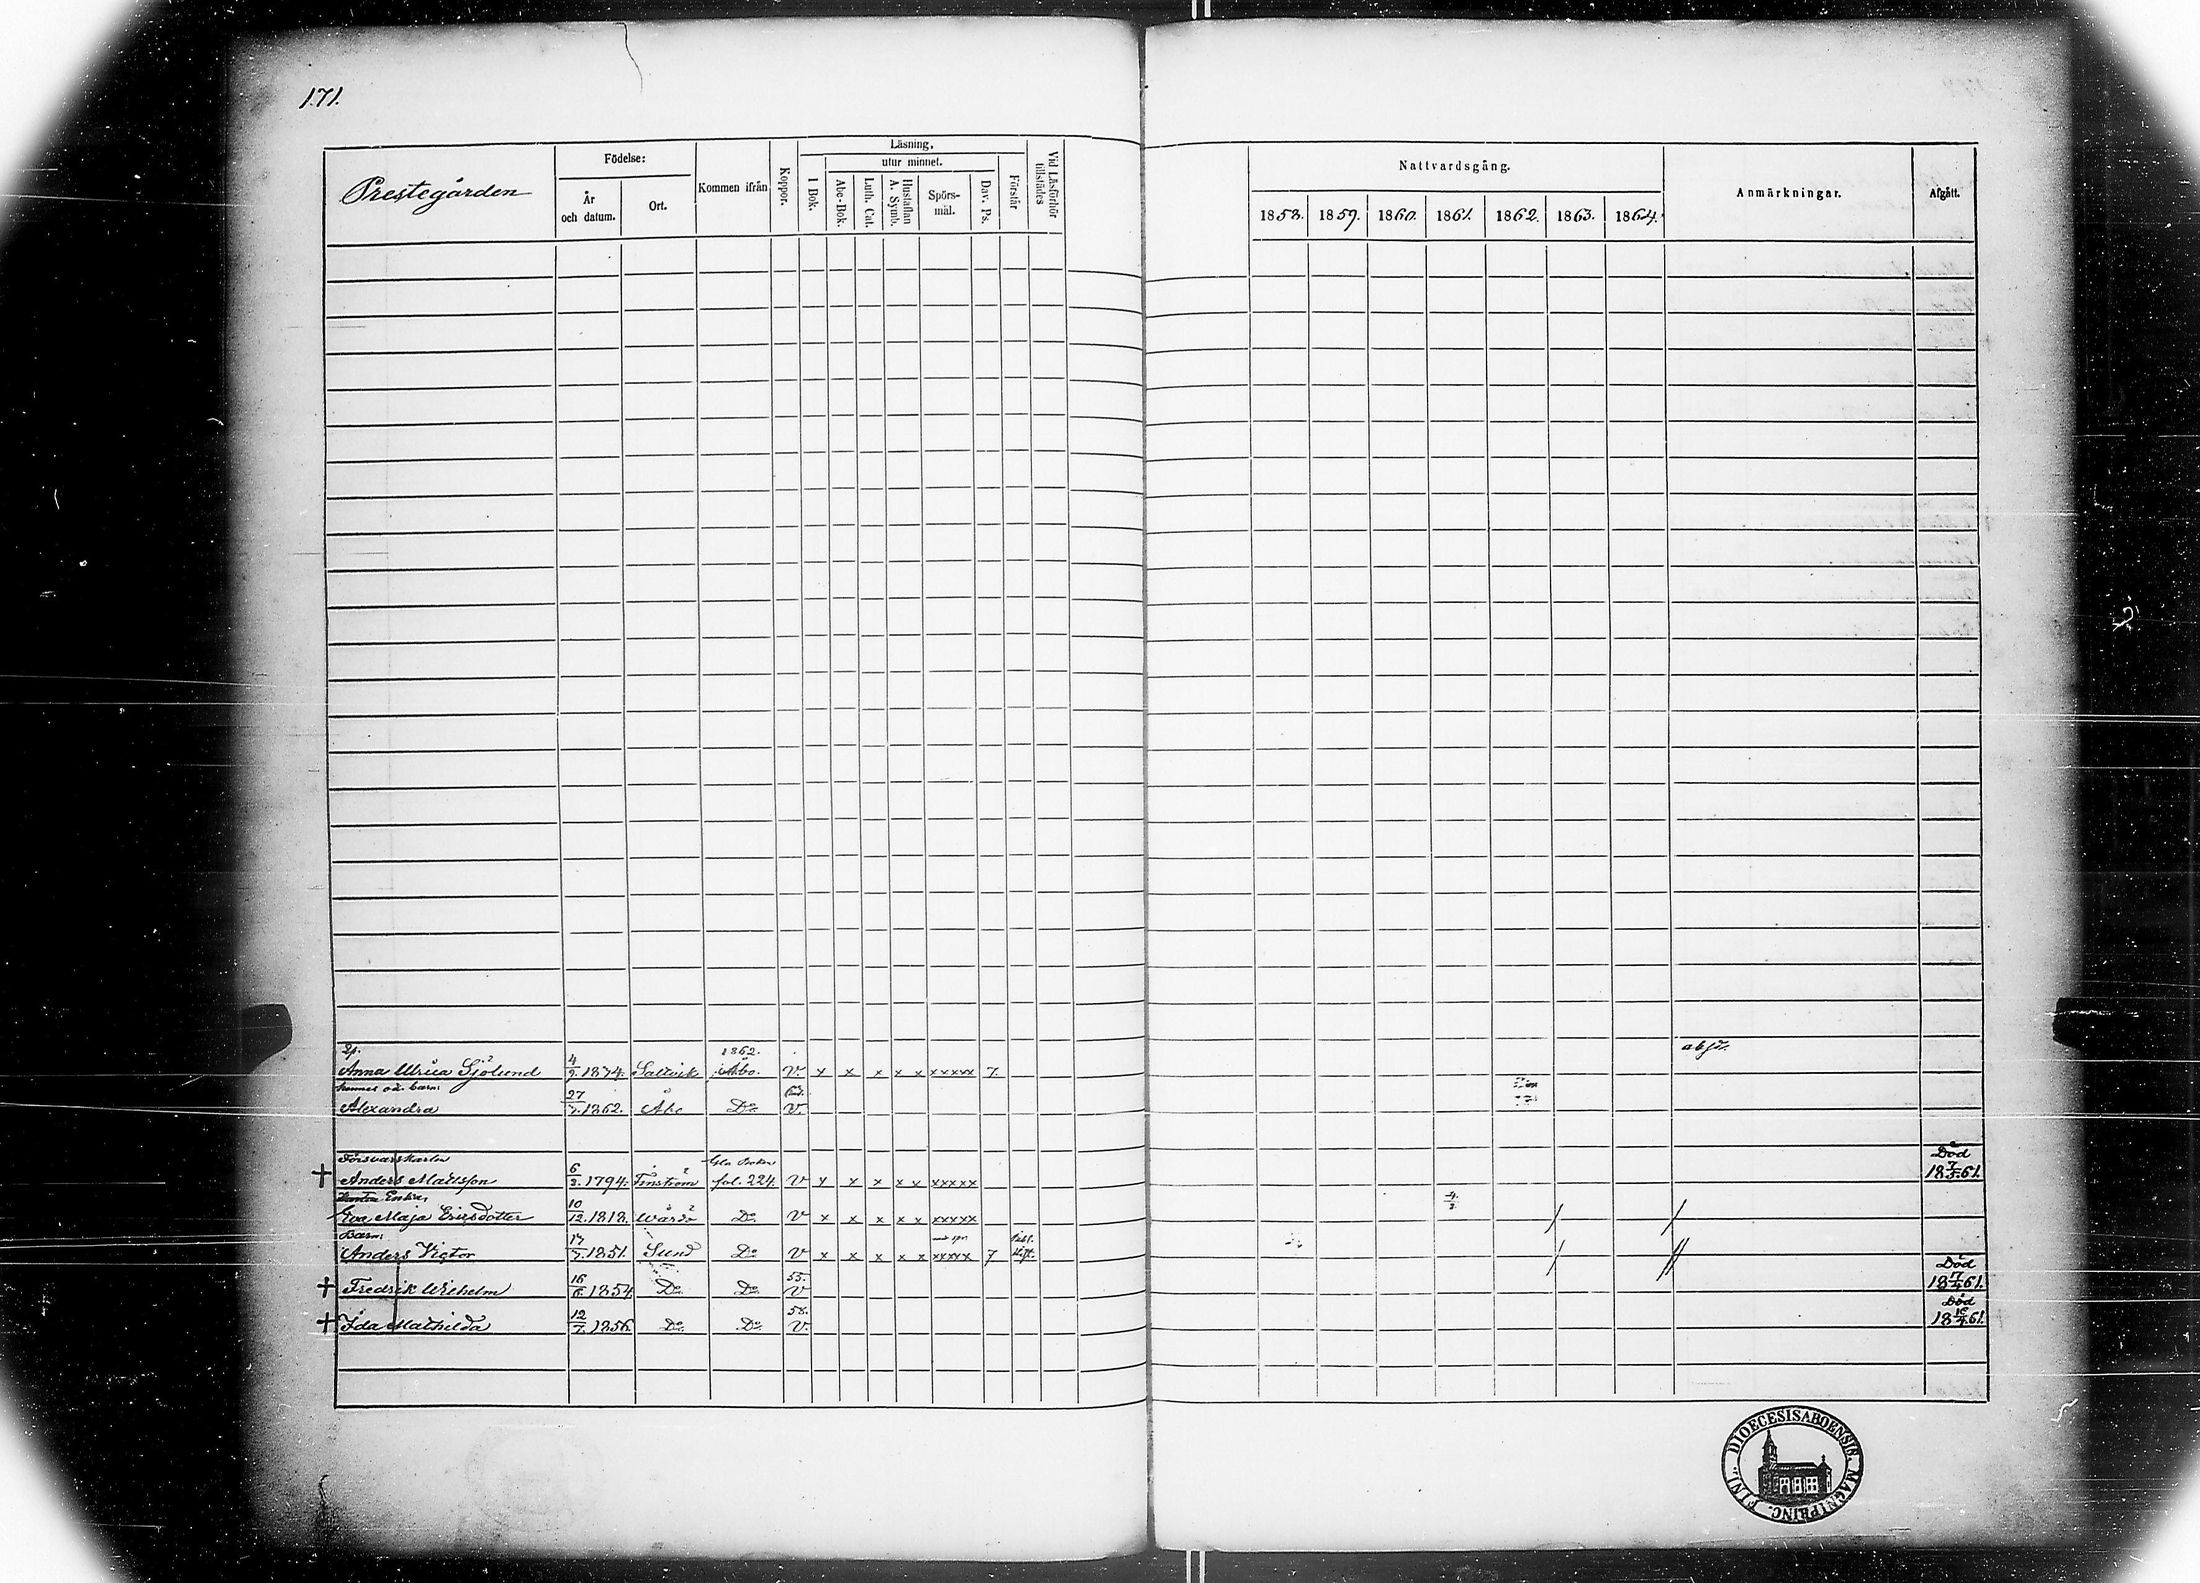 171.
Prestegården
Födelse:
År och datum.
Ort.
Kommen ifrån
Koppor.
Läsning,
I Bok.
utur minnet.
Abc-Bok.
Luth. Cat.
Hustaflan A. Symb.
Spörsmål.
Dav. Ps.
Förstår
Vid Läsförhör tillstädes
Nattvardsgång.
1858. 1859. 1860. 1861. 1862. 1863. 1864.
Anmärkningar.
Afgått.
1862.
Anna Ulrica Sjölund 4/9.1834. Saltvik Åbo. V. x x x x x xxxxx 7. abst.
hennes oä. barn:
Alexandra 27/7.1862. Åbo Do V.
Försvarskarlen
Anders Mattsson 6/2.1794. Finström fol. 224. V x x x x x xxxxx Död 18 7/5 61.
Enkan
Eva Maja Ersdotter 10/12.1818. Wårdö Do V x x x x x xxxxx 4/3.
Barn:
Anders Victor 17/7.1851. Sund Do V x x x x x xxxxx 7
Fredrik Wilhelm 16/6.1854 Do Do 55. V Död 18 17/4 61.
Ida Mathilda 12/7.1856. Do Do 58. V. Död 18 18/4 61.
DIOECESIS ABOENSIS. MAGNI PRINC. FINL.